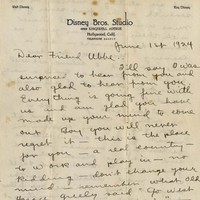 Walt Disney
Roy Disney
Disney Bros. Studio
4649 KINGSWELL AVENUE
Hollywood, Calif.
TELEPHONE
June 1st 1924
Dear Friend Ubbe
I'll say I was
surprised to hear from you and
also glad to hear from you
Everything is going fine with
us and am glad you have
made up your mind to come
out. Boy you will never
regret it — this is the place
for you — a real country —
to work and play in — no
Kidding — don't change your
mind — remember what old
Horace Greely said "Go west